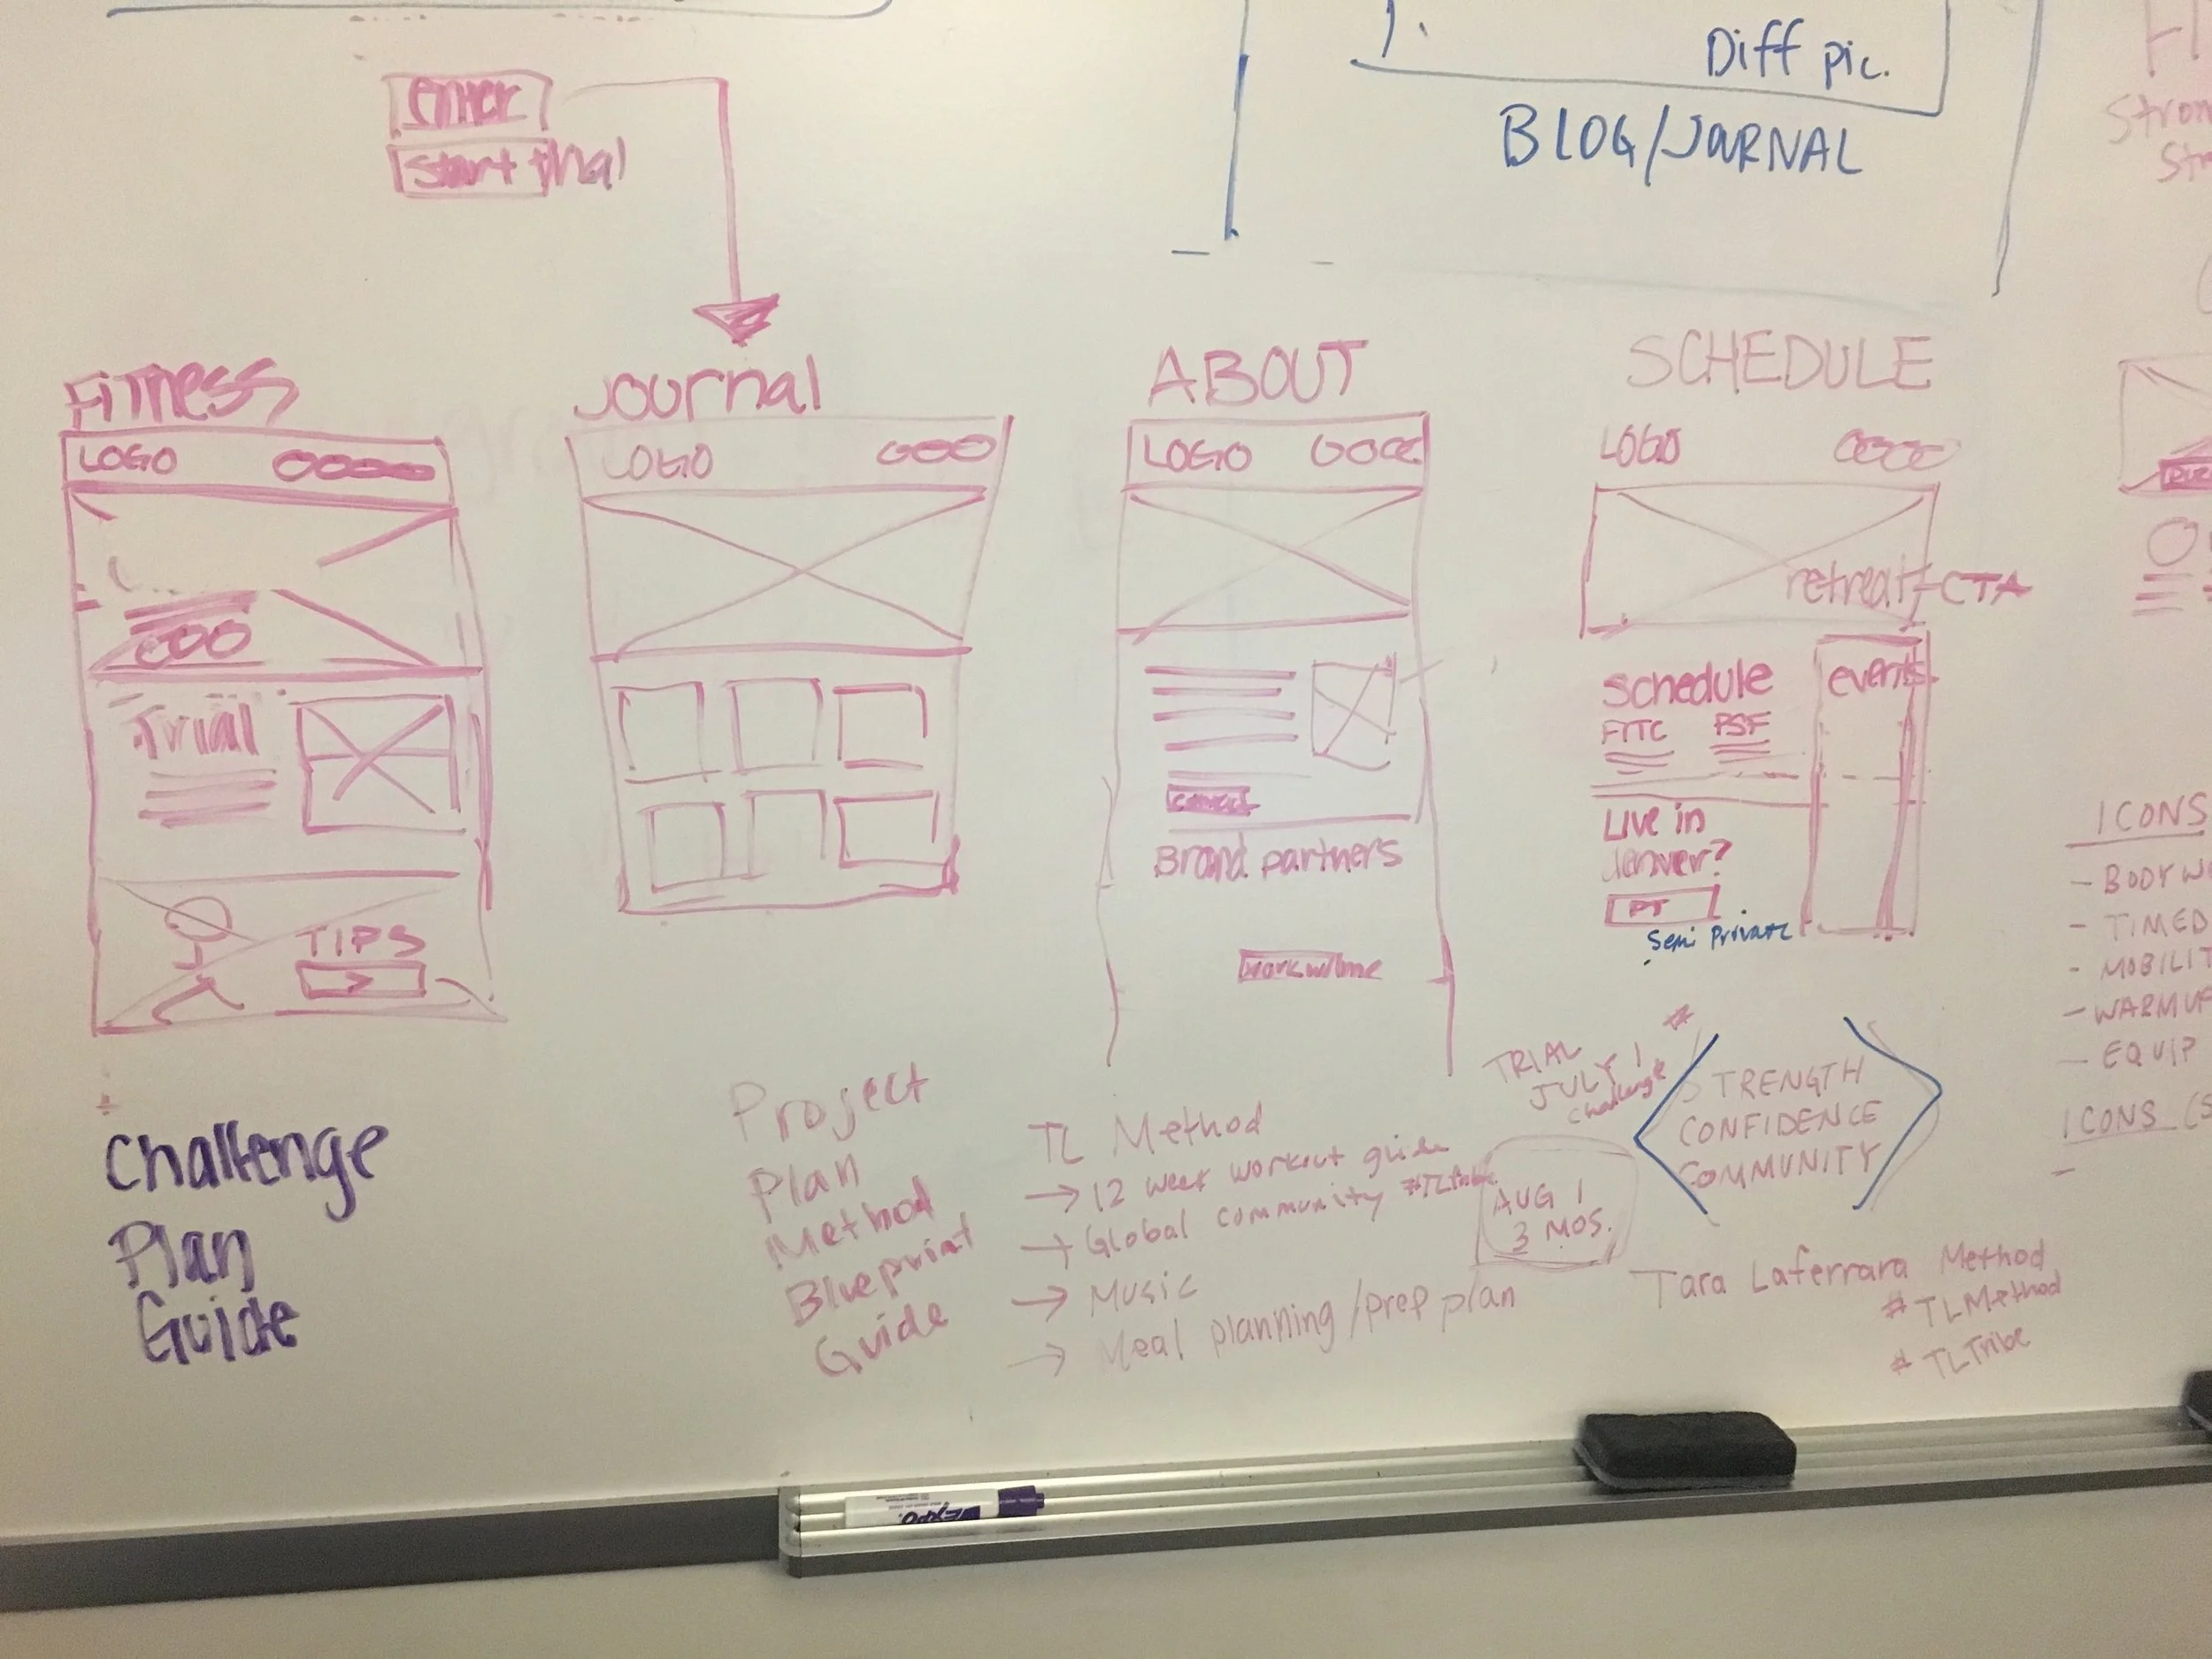 Diff pic.
BLOG/JOURNAL
enter
start trial
FITNESS
LOGO
Trial
TIPS
JOURNAL
LOGO
ABOUT
LOGO
connect
Brand partners
work w/me
SCHEDULE
LOGO
retreat CTA
Schedule
events
FITC
PSF
Live in
denver?
PT
Semi Private
ICONS
- TIMED
- EQUIP
ICONS
Challenge
Plan
Guide
Project
Plan
Method
Blueprint
Guide
TL Method
→ 12 week workout guide
→ Global community #TLtribe
→ Music
→ Meal planning/prep plan
TRIAL
JULY 1
challenge
AUG 1
3 MOS.
#
STRENGTH
CONFIDENCE
COMMUNITY
Tara Laferrara Method
#TLMethod
#TLTribe
EXPO